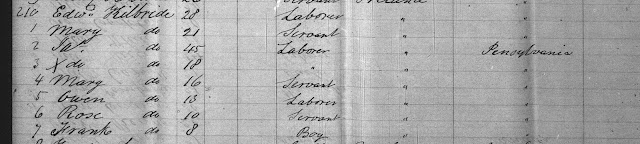 210 Edwd Kilbride 28 Laborer "
1 Mary do 21 Servant "
2 Jas. do 45 Laborer " Pensylvania
3 X do 18 " "
4 Marg do 16 Servant "
5 Owen do 13 Laborer "
6 Rose do 10 Servant "
7 Frank do 8 Boy "